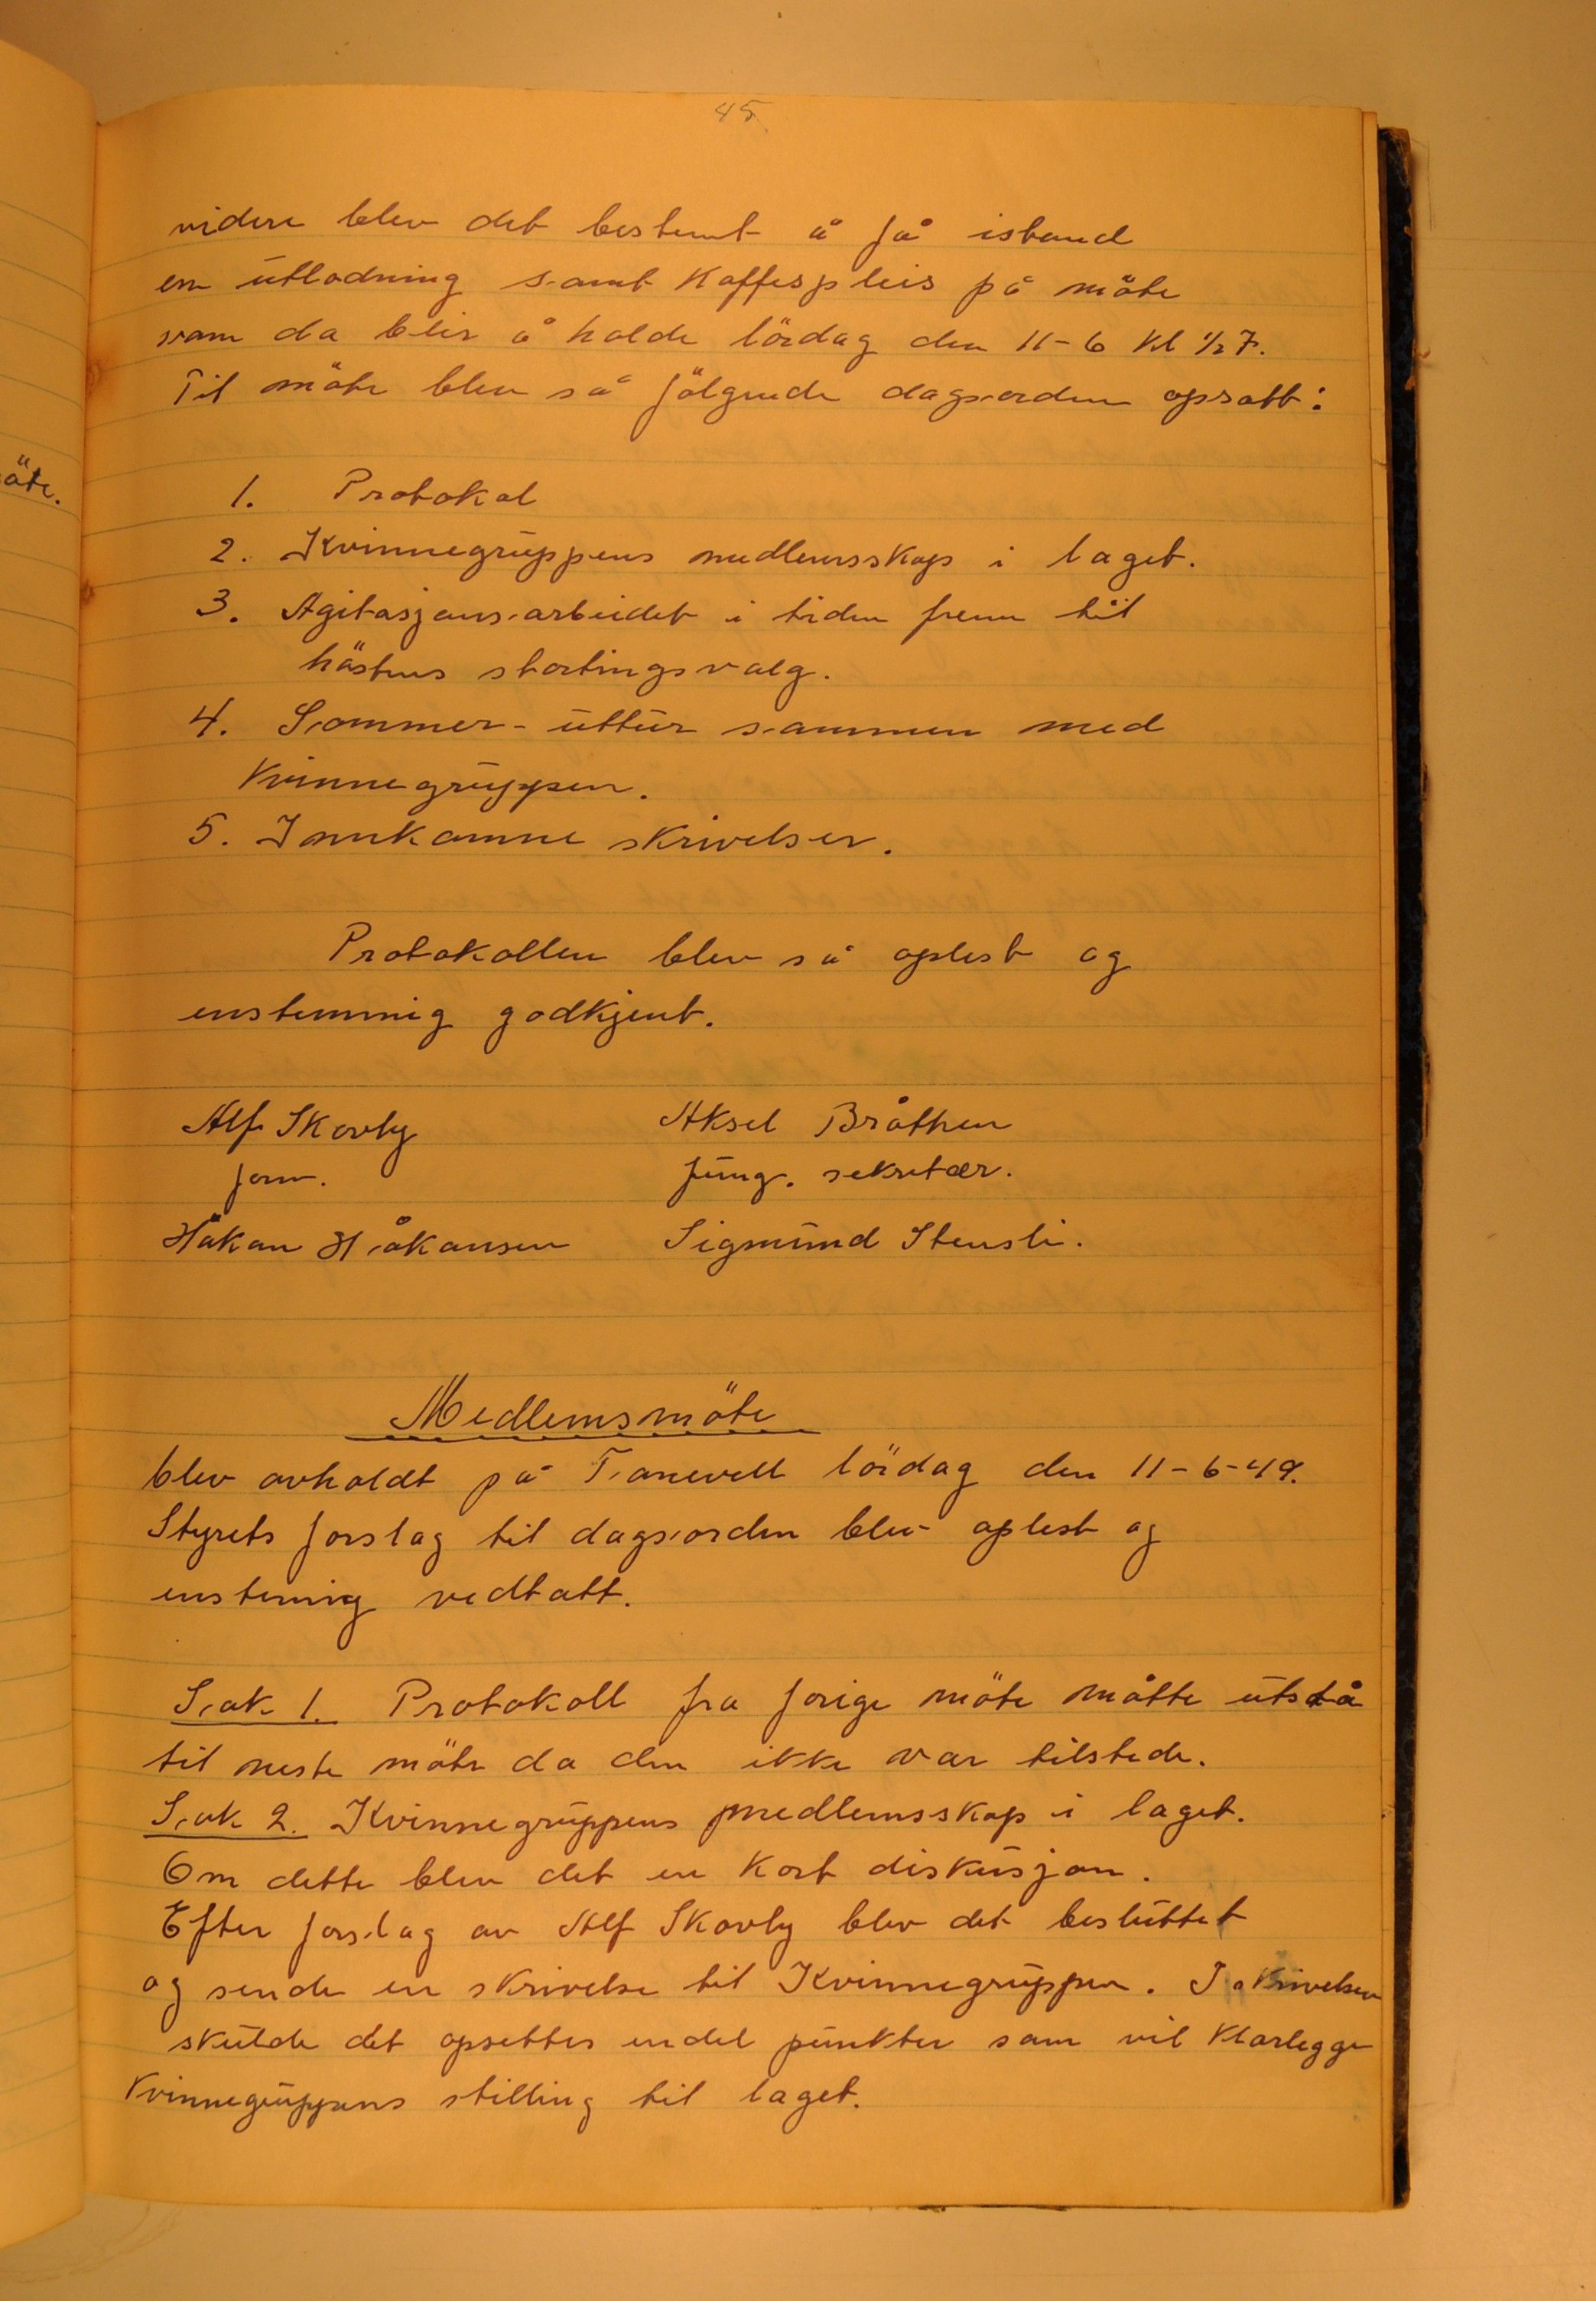 45
videre blev det bestemt å få istand
en utlodning samt Kaffespleis på möte
som da blir å holde lördag den 11-6 Kl ½ 7.
Til möte blev så fölgende dagsorden opsatt:
1. Protokol
2. Kvinnegruppens medlemsskap i laget.
3. Agitasjonsarbeidet i tiden frem til
höstens stortingsvalg.
4. Sommer-uttur sammen med
Kvinnegruppen.
5. Innkomne skrivelser.
Protokollen blev så oplest og
enstemmig godkjent.
Alf Skovly Aksel Bråthen
form. fung. sekretær.
Håkon Håkonsen Sigmund Stensli.
Medlemsmöte
blev avholdt på lördag den 11-6-49.
Styrets forslag til dagsorden blev oplest og
enstemig vedtatt.
Sak 1. Protokoll fra forige möte måtte utstå
til neste möte da den ikke var tilstede.
Sak 2. Kvinnegruppens medlemsskap i laget.
Om dette blev det en kort diskusjon.
Efter forslag av Alf Skovly blev det besluttet
og sende en skrivelse til Kvinnegruppen. I skrivelsen
skulde det opsettes endel punkter som vil klarlegge
Kvinnegruppens stilling til laget.
öte.